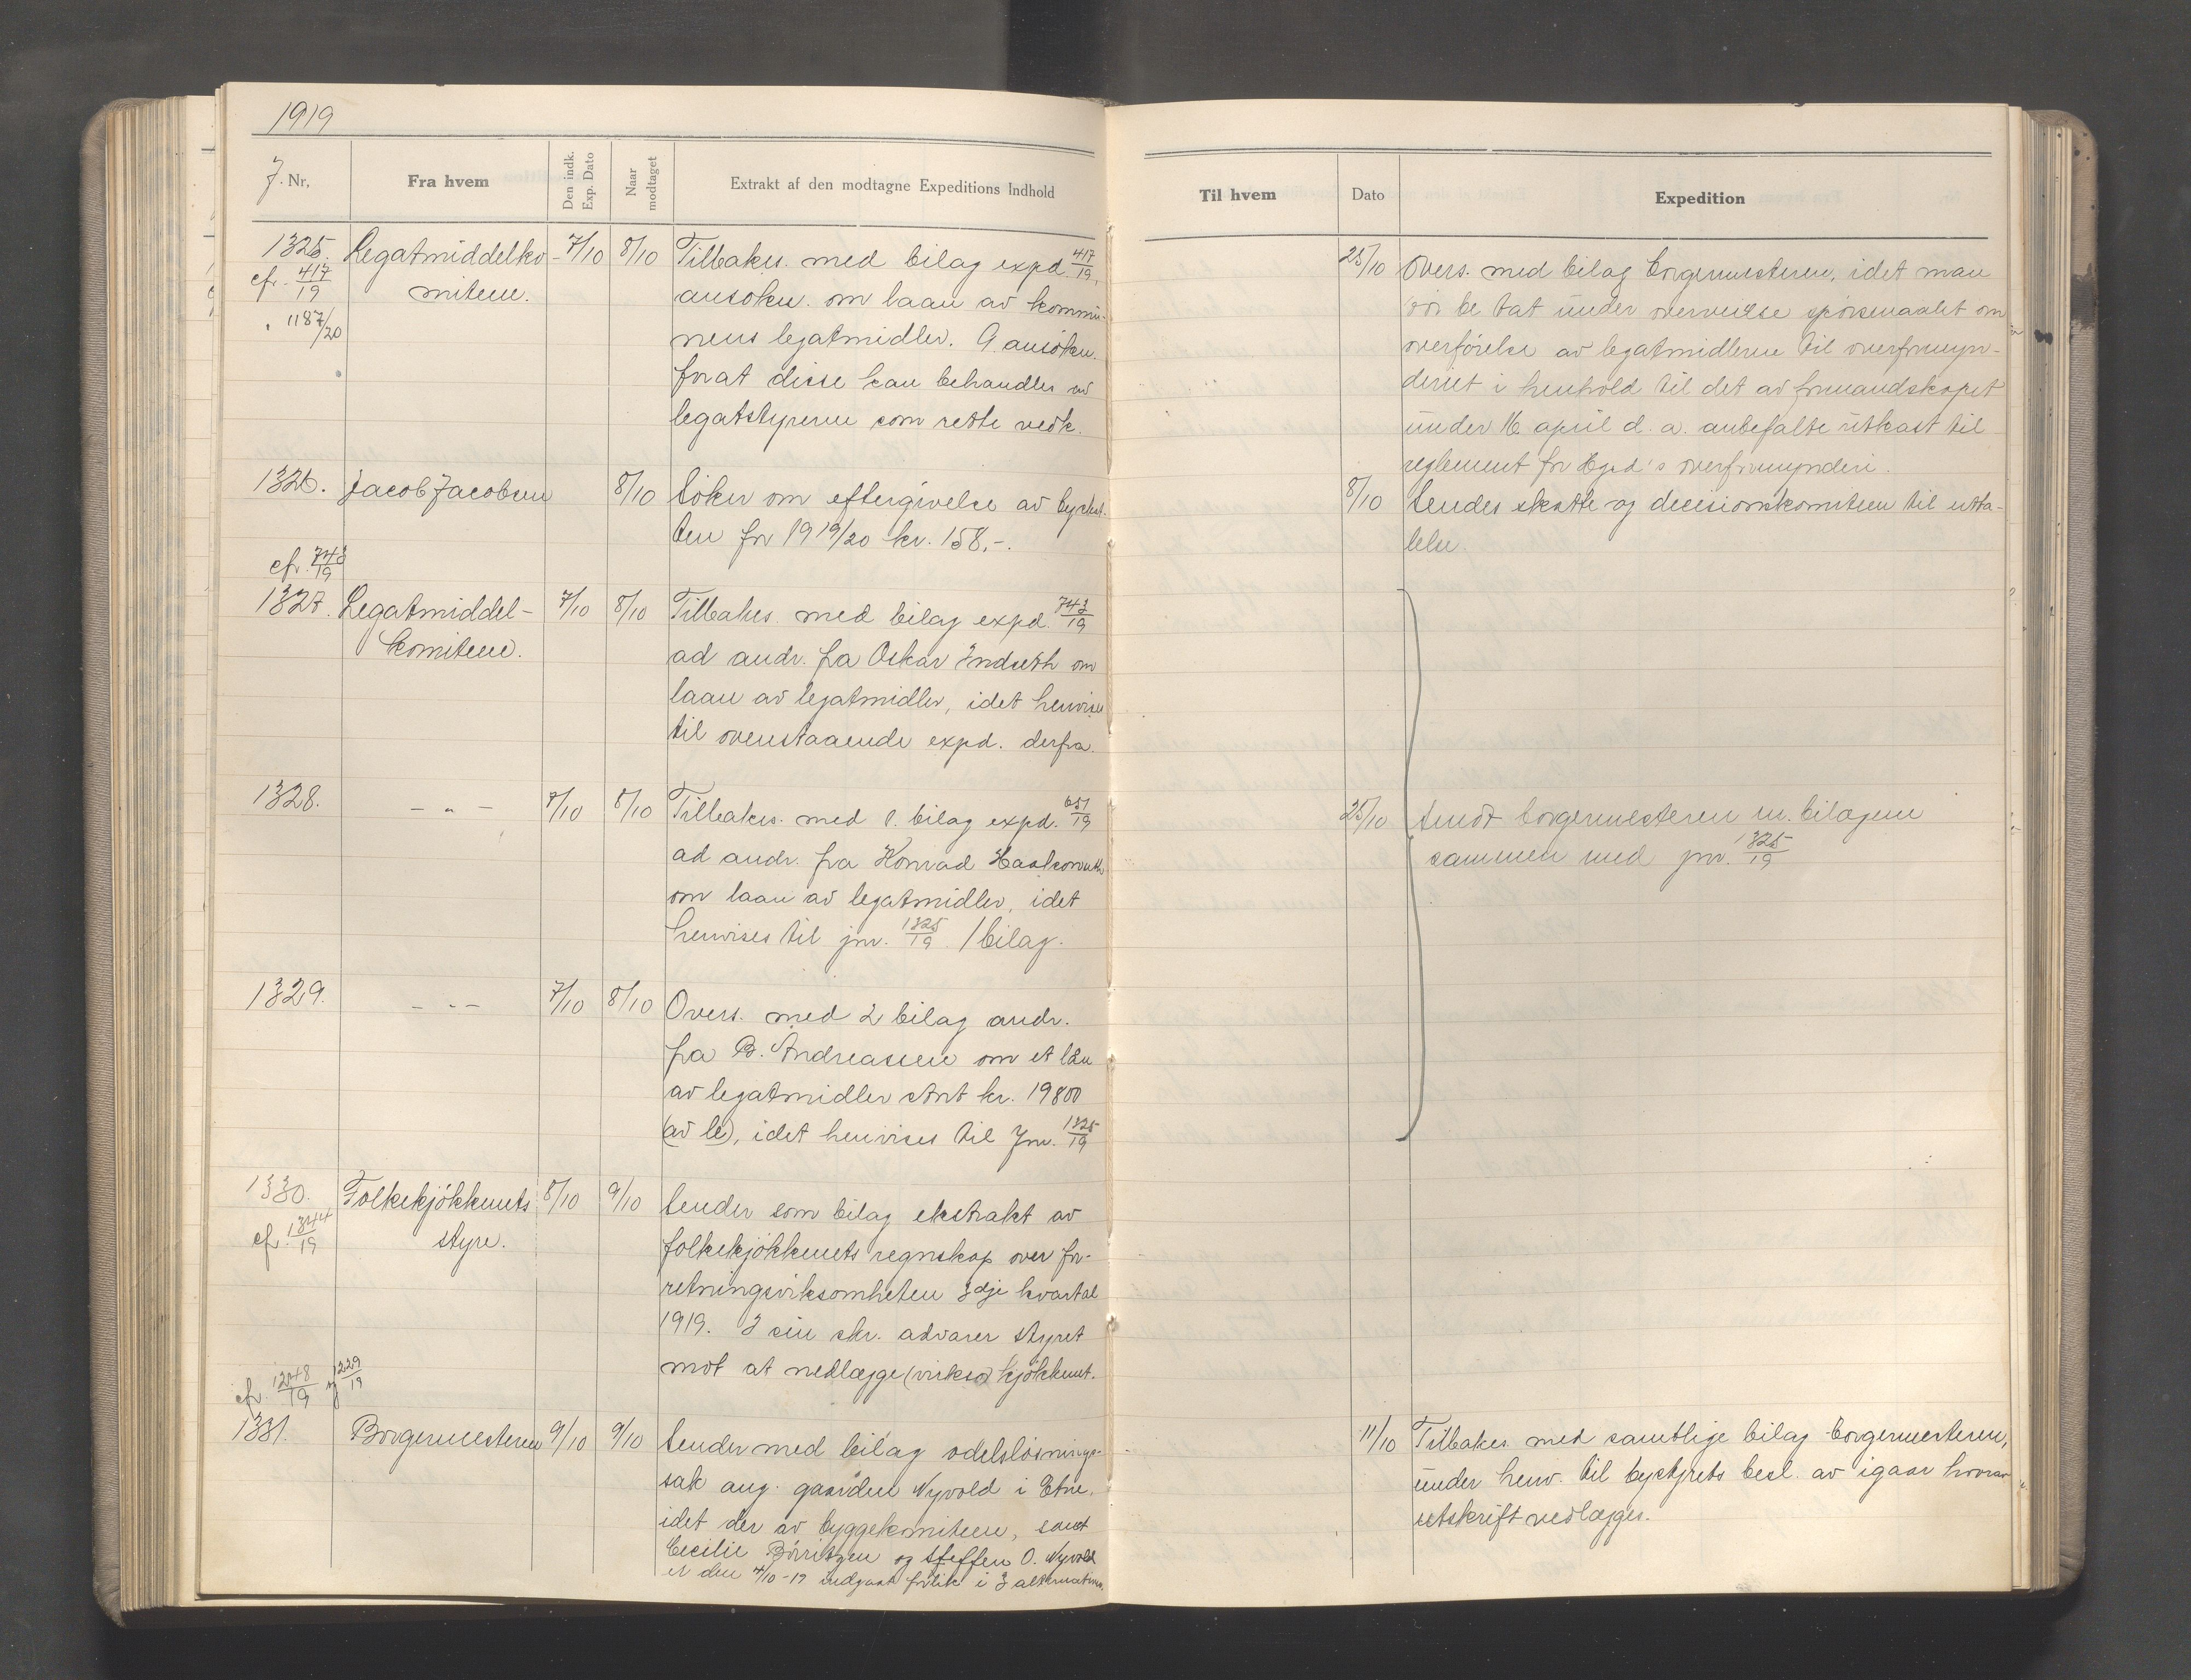 1919
J. Nr.
Fra hvem
Den indk. Exp. Dato
Naar modtaget
Extrakt af den modtagne Expeditions Indhold
1325.
cfr. 417/19
" 1187/20
Legatmiddelko-
miteen.
7/10
8/10
Tilbakes. med bilag expd. 417/19,
ansøkn. om laan av kommu-
nens legatmidler. 9 ansøkn.
forat disse kan behandles av
legatstyrerne som rette vedk.
1326.
Jacob Jacobsen
8/10
Søker om eftergivelse av byskat-
ten for 1919/20 kr. 158,-.
cfr. 743/19
1327.
Legatmiddel-
komiteen.
7/10
8/10
Tilbakes. med bilag expd. 743/19
ad andr. fra Oskar Indseth om
laan av legatmidler, idet henvises
til ovenstaaende expd. derfra.
1328.
- " -
7/10
8/10
Tilbakes. med 1. bilag expd. 651/19
ad andr. fra Konrad
om laan av legatmidler, idet
henvises til jnr. 1325/19 1 bilag.
1329.
- " -
7/10
8/10
Overs. med 2 bilag andr.
fra B. Andreassen om et lån
av legatmidler stort kr. 19800
(av le), idet henvises til Jnr. 1325/19
1330.
cfr. 1344/19
Folkekjøkkenets
styre.
8/10
9/10
Sender som bilag ekstrakt av
folkekjøkkenets regnskap over for-
retningsvirksomheten 3dje kvartal
1919. I sin skr. advarer styret
mot at nedlægge (virkso) kjøkkenet.
cfr. 1248/19 og 1229/19
1331.
Borgermesteren
9/10
9/10
Sender med bilag odelsløsnings-
sak ang. gaarden Nyvold i Etne,
idet der av byggekomiteen, samt
Cecilie og Steffen O. Nyvold
er den 7/10-19 indgaat forlik i 3 alternativer.
Til hvem
Dato
Expedition
25/10
Overs. med bilag borgermesteren, idet man
be tat under overveielse spørsmaalet om
overførelse av legatmidlerne til overformyn-
deriet i henhold til det av formandskapet
under 16. april d. a. anbefalte utkast til
reglement for Hgsd's overformynderi.
8/10
Sendes skatte og decisionskomiteen til utta-
lelse.
25/10
Sendt borgermesteren m. bilagene
sammen med jnr. 1325/19
11/10
Tilbakes. med samtlige bilag borgermesteren,
under henv. til bystyrets besl. av igaar hvorav
utskrift vedlægges.